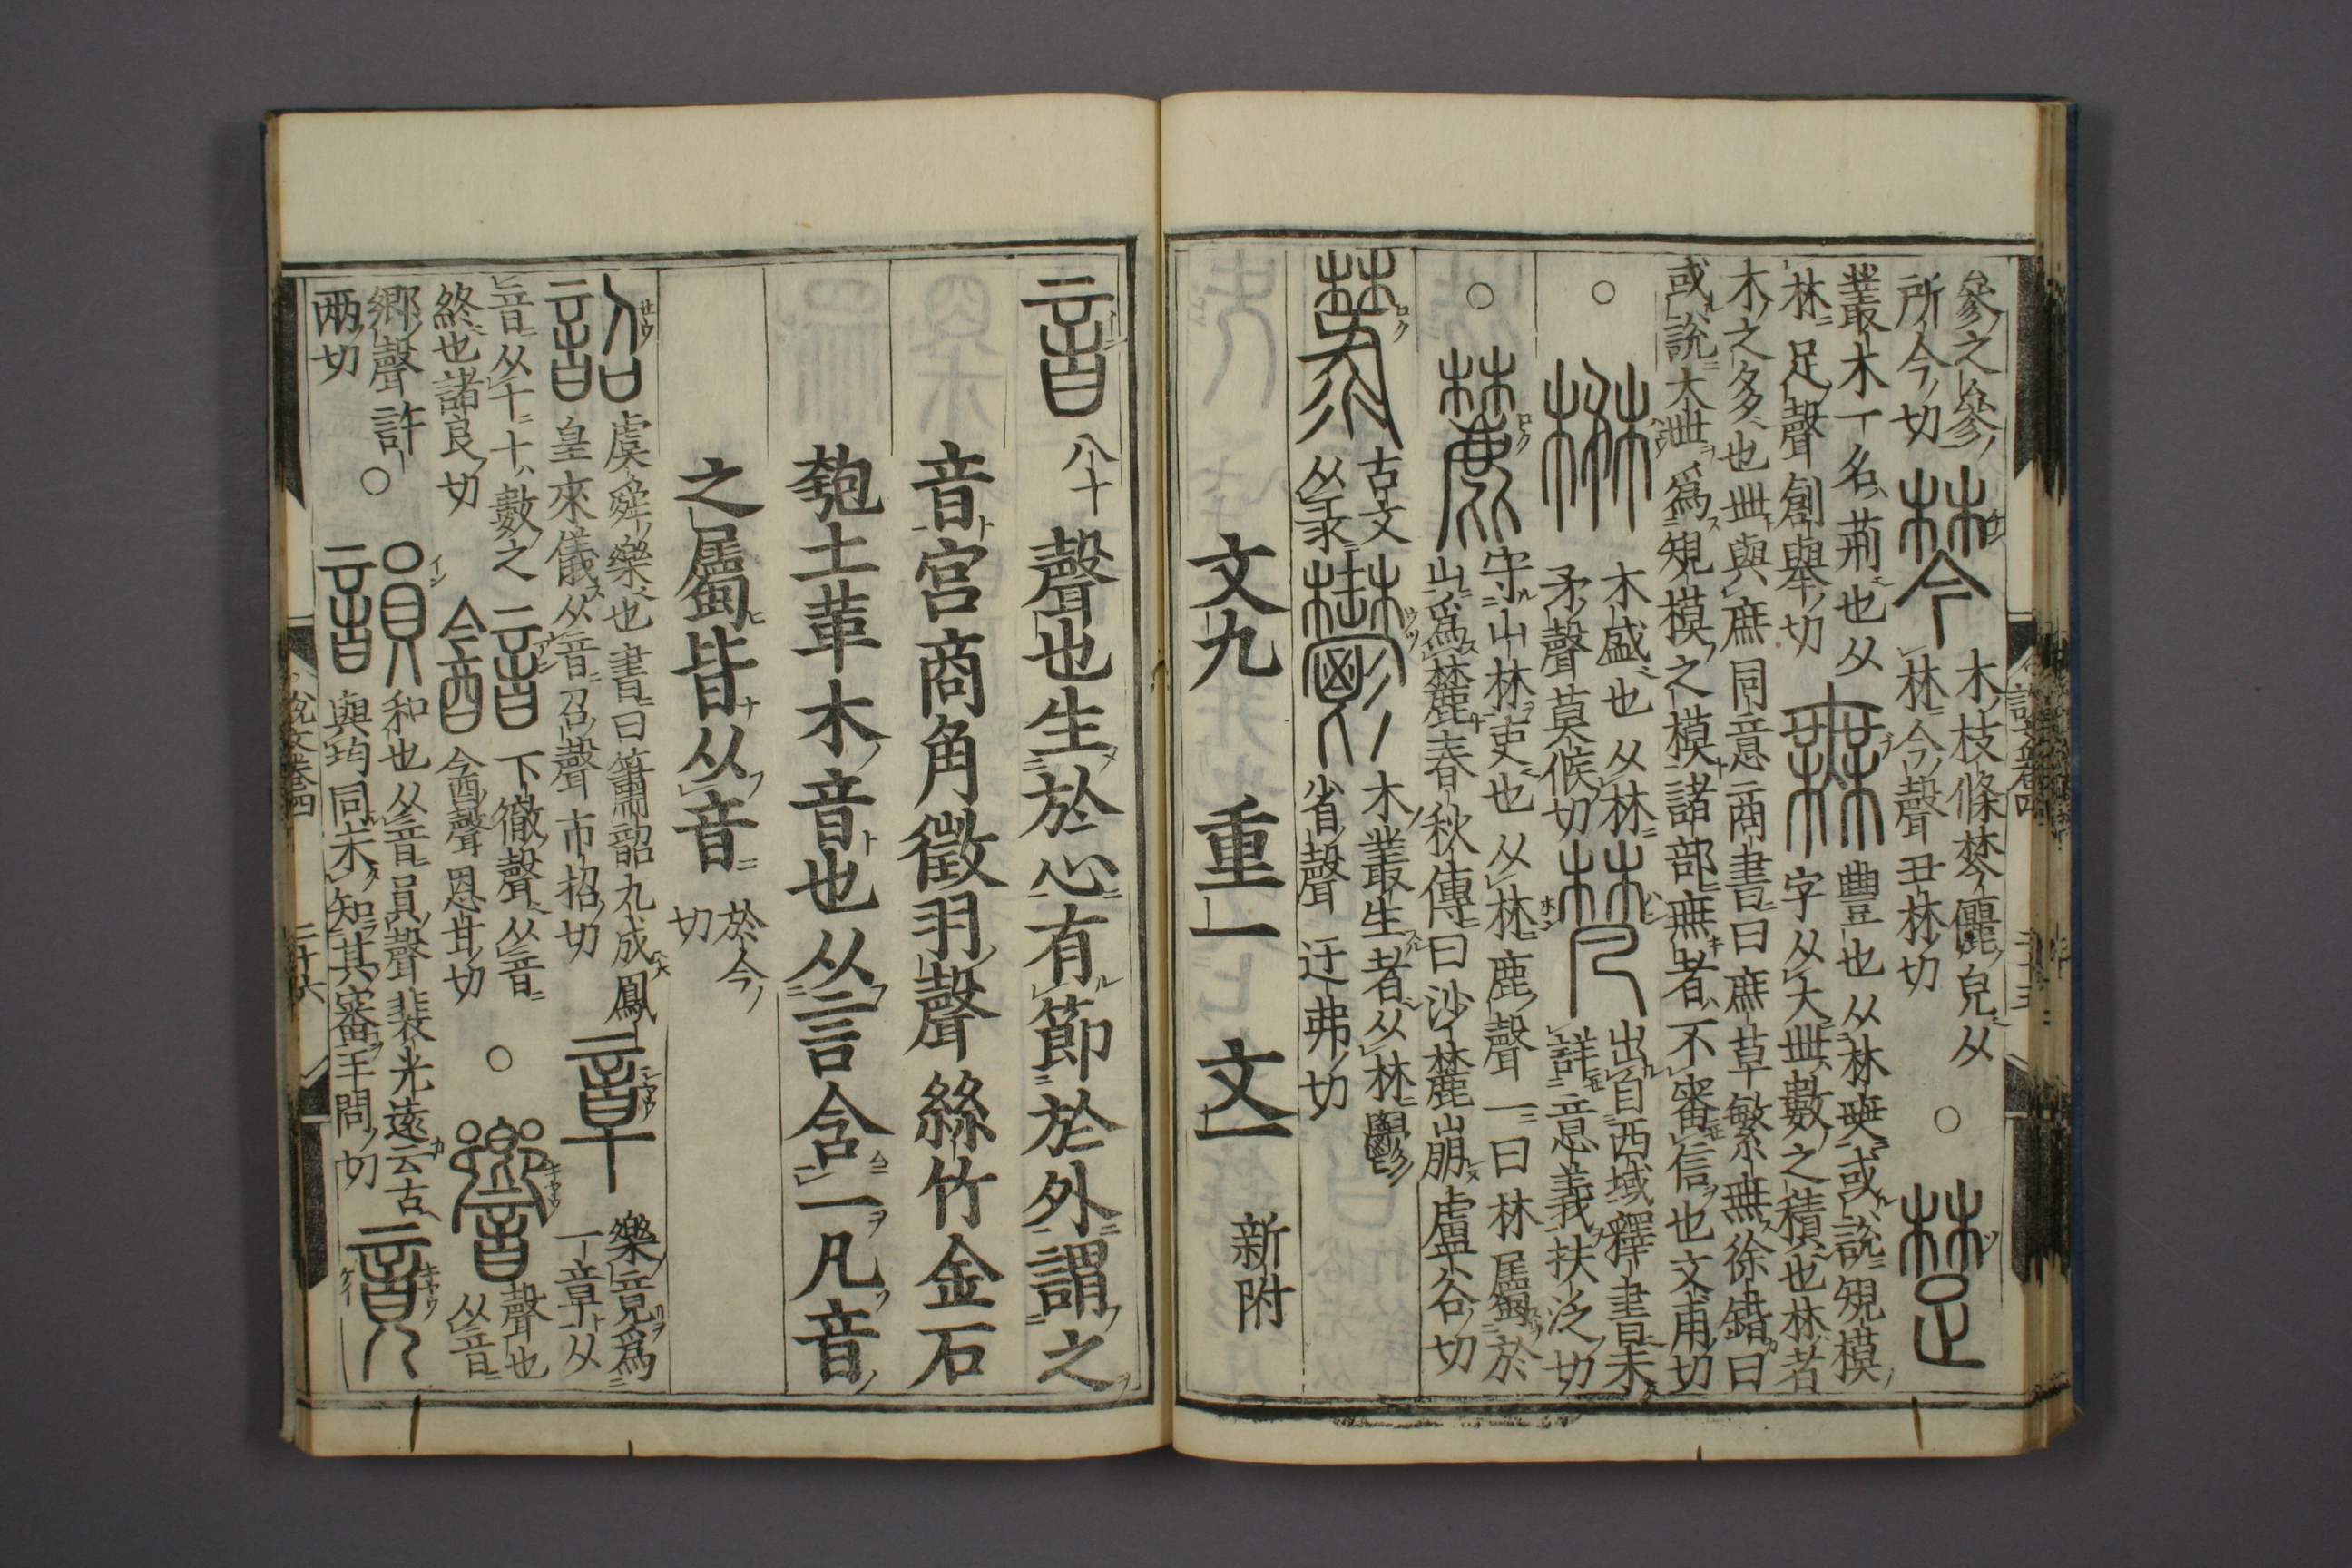 參之參
所今切 棽 木枝條棽儷皃从
林今聲丑林切 ○ 楚
叢木一名荊也从
林足聲創舉切 無 豐也从林奭或說規模
字从大𠦜數之積也林者
木之多也𠦜與庶同意商書曰庶草繁無徐鍇曰
或說大𠦜爲規模之模諸部無者不審信也文甫切
○ 楙 木盛也从林
矛聲莫候切 梵 出自西域釋書未
詳意義扶泛切
○ 麓 守山林吏也从林鹿聲一曰林屬於
山爲麓春秋傳曰沙麓崩盧谷切
䔞 古文
从彔 鬱 木叢生者从林𩰪
省聲迂弗切
文九 重一 文一 新附
音 八十 聲也生於心有節於外謂之
音宮商角徵羽聲絲竹金石
匏土革木音也从言含一凡音
之屬皆从音 於今
切
韶 虞舜樂也書曰簫韶九成鳳
皇來儀从音召聲市招切 章 樂竟爲
一章从
音从十十數之
終也諸良切 音 下徹聲从音
今酉聲恩甘切 ○ 響 聲也
从音
鄉聲許
兩切 ○ 韻 和也从音員聲裴光遠云古
與均同未知其審王問切 竟
說文卷四 二十六